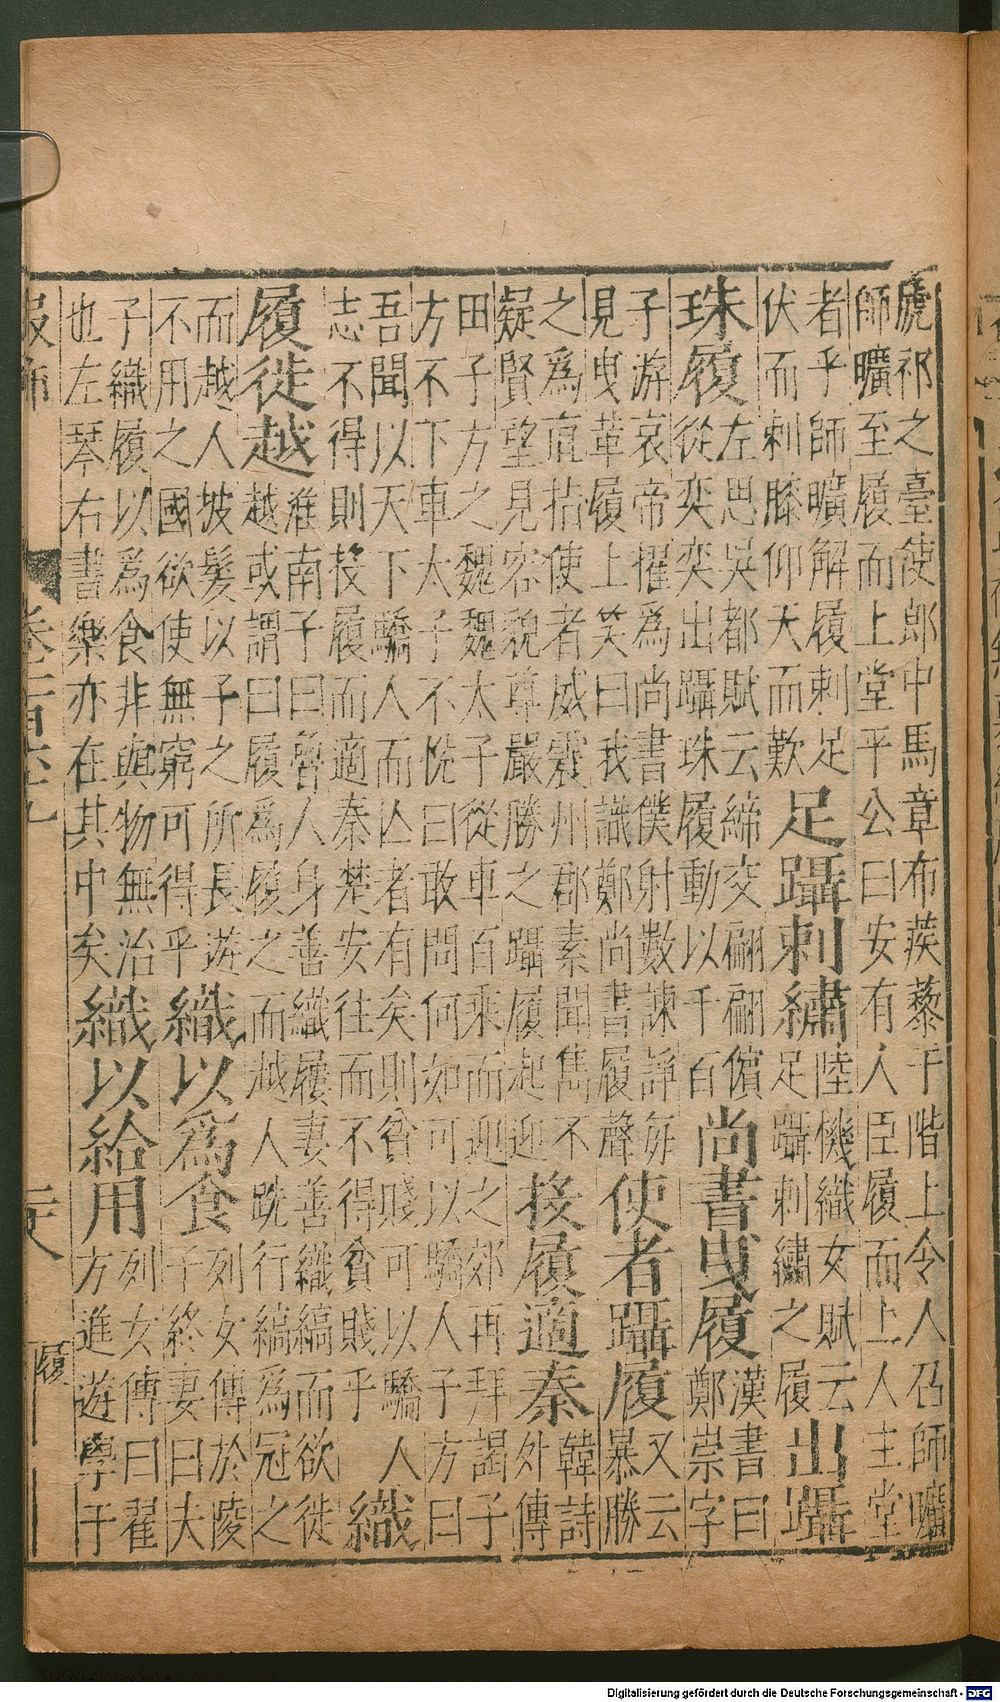 虒祁之臺使郎中馬章布蒺藜于階上令人召師曠
師曠至履而上堂平公曰安有人臣履而上人主堂
者乎師曠解履刺足
伏而刺膝仰天而歎
足躡刺繡
陸機織女賦云
足躡刺繡之履
出躡
珠履
左思吳都賦云締交翩翩儐
從奕奕出躡珠履動以千百
尚書曳履
漢書曰
鄭崇字
子游哀帝擢爲尚書僕射數諫諍每
見曳革履上笑曰我識鄭尚書履聲
使者躡履
又云
暴勝
之爲直指使者威震州郡素聞雋不
疑賢望見容貌尊嚴勝之躡履起迎
接履適秦
韓詩
外傳
田子方之魏魏太子從車百乘而迎之郊再拜謁子
方不下車太子不悅曰敢問何如可以驕人子方曰
吾聞以天下驕人而亡者有矣則貧賤可以驕人
志不得則接履而適秦楚安往而不得貧賤乎
織
履徙越
淮南子曰魯人身善織屨妻善織縞而欲徙
越或謂曰履爲履之而越人跣行縞爲冠之
而越人披髮以子之所長遊
不用之國欲使無窮可得乎
織以爲食
列女傳於陵
子終妻曰夫
子織履以爲食非與物無治
也左琴右書樂亦在其中矣
織以給用
列女傳曰翟
方進遊學于
服飾
履
Digitalisierung gefördert durch die Deutsche Forschungsgemeinschaft - DFG